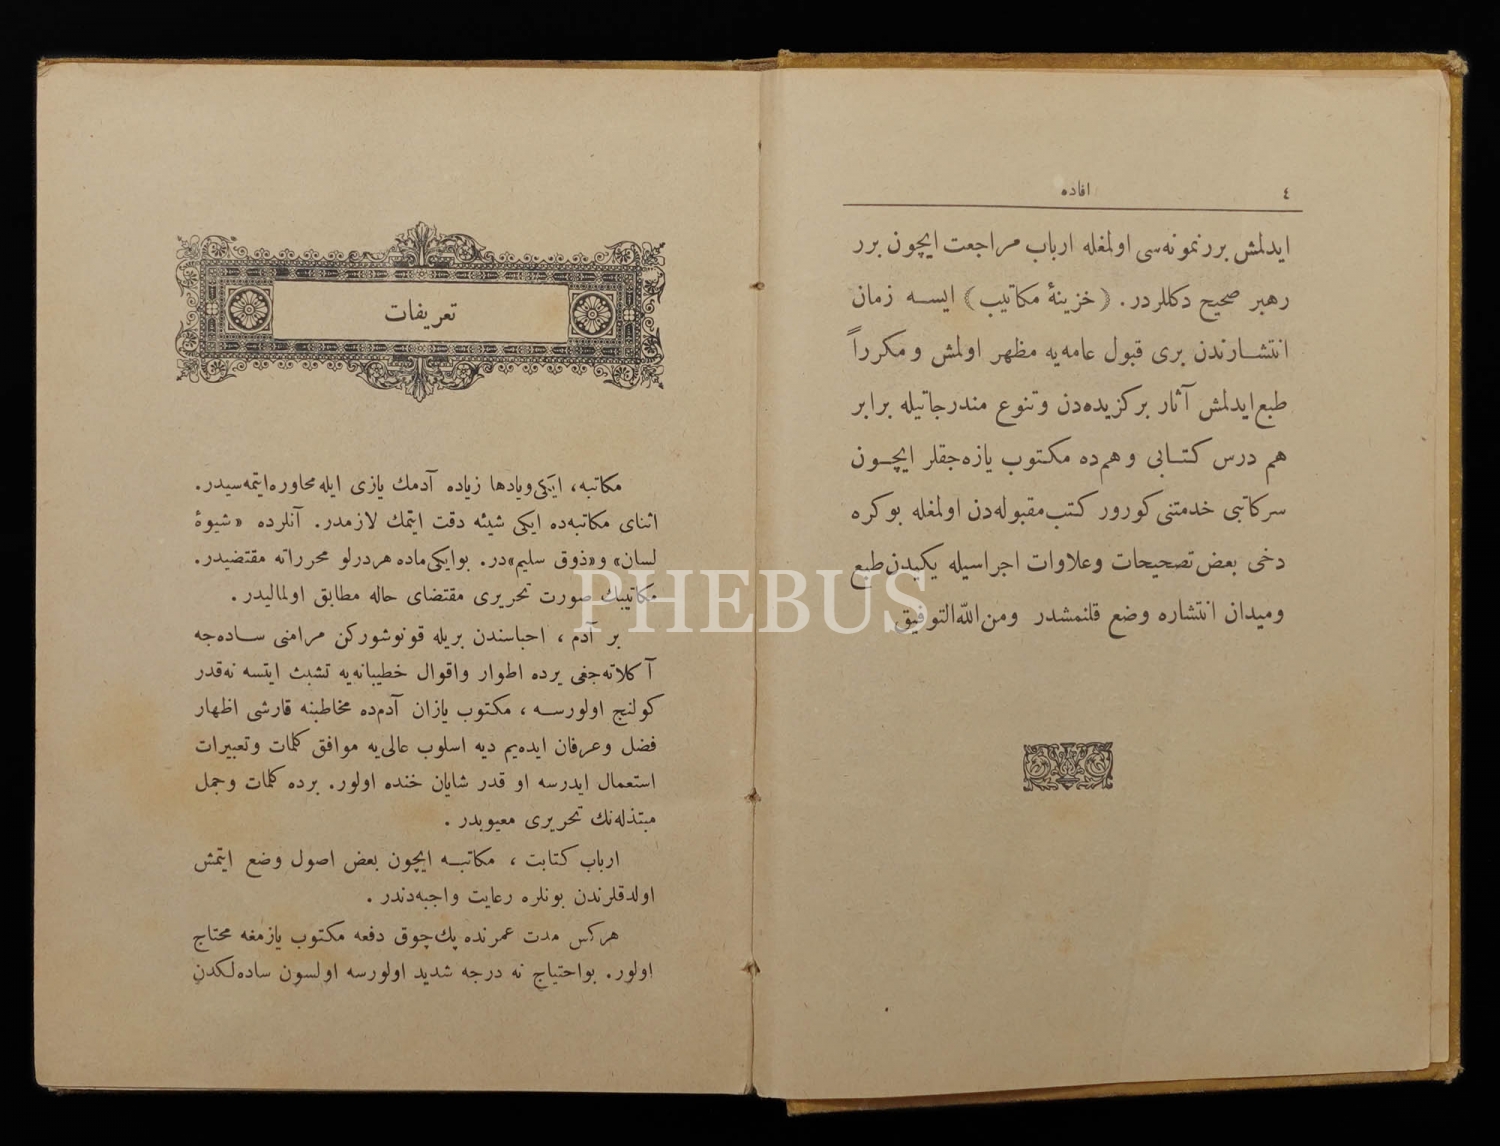 ٤
افاده
ایدلمش برر نمونه‌سی اولمغله ارباب مراجعت ایچون برر
رهبر صحیح دکللردر. (خزینهٔ مکاتیب) ایسه زمان
انتشارندن بری قبول عامه‌یه مظهر اولمش و مکرراً
طبع ایدلمش آثار برکزیده‌دن و تنوع مندرجاتیله برابر
هم درس کتابی و هم‌ده مکتوب یازه‌جقلر ایچون
سرکاتبی خدمتنی کورور کتب مقبوله‌دن اولمغله بو کره
دخی بعض تصحیحات وعلاوات اجراسیله یکیدن طبع
ومیدان انتشاره وضع قلنمشدر ومن‌الله‌التوفیق
تعریفات
مکاتبه، ایکی ویادها زیاده آدمك یازی ایله محاوره ایتمه‌سیدر.
اثنای مکاتبه‌ده ایکی شیئه دقت ایتمك لازمدر. آنلرده «شیوهٔ
لسان» و«ذوق سلیم»در. بوایکی ماده هردرلو محرراته مقتضیدر.
مکاتیبك صورت تحریری مقتضای حاله مطابق اولمالیدر.
بر آدم، احباسندن بریله قونوشورکن مرامنی ساده‌جه
آکلاته‌جغی یرده اطوار واقوال خطیبانه‌یه تشبث ایتسه نه‌قدر
کولنج اولورسه، مکتوب یازان آدم‌ده مخاطبنه قارشی اظهار
فضل وعرفان ایده‌یم دیه اسلوب عالی‌یه موافق کلمات وتعبیرات
استعمال ایدرسه او قدر شایان خنده اولور. برده کلمات وجمل
مبتذله‌نك تحریری معیوبدر.
ارباب کتابت، مکاتبه ایچون بعض اصول وضع ایتمش
اولدقلرندن بونلره رعایت واجبه‌دندر.
هرکس مدت عمرنده پك‌چوق دفعه مکتوب یازمغه محتاج
اولور. بواحتیاج نه درجه شدید اولورسه اولسون ساده‌لکدن
PHEBUS